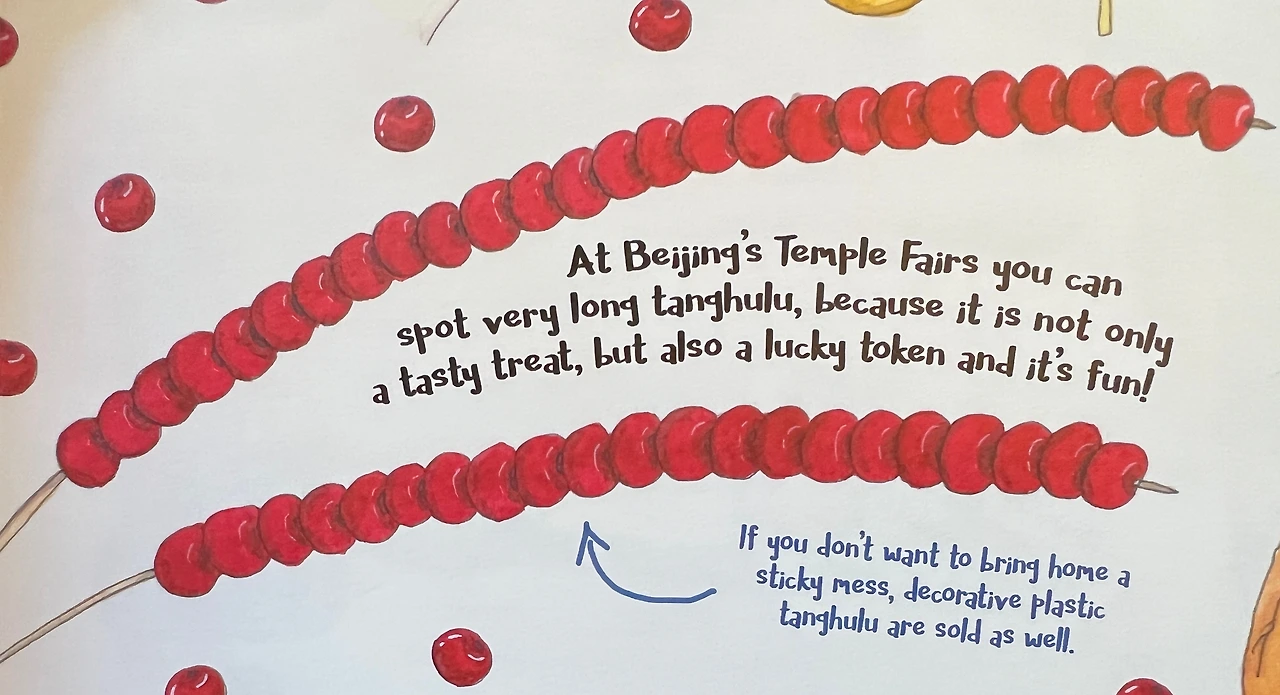 At Beijing's Temple Fairs you can
spot very long tanghulu, because it is not only
a tasty treat, but also a lucky token and it's fun!
If you don't want to bring home a
sticky mess, decorative plastic
tanghulu are sold as well.